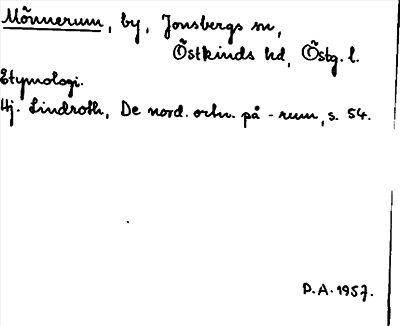 Mönnerum, by, Jonsbergs sn,
Östkinds hd, Östg. l.
Etymologi.
Hj. Lindroth, De nord. ortn. på -rum, s. 54.
D.A. 1957.